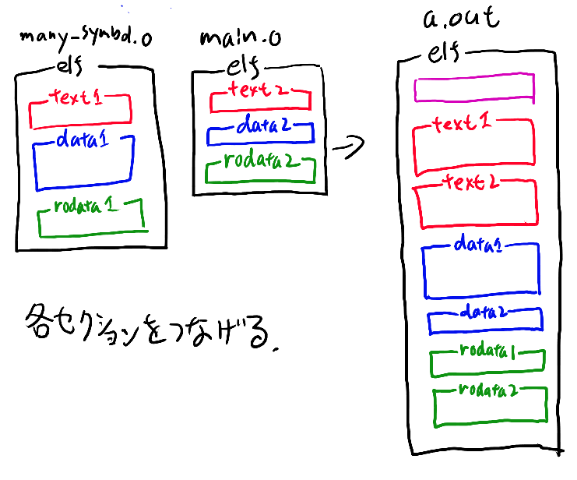 many_symbol.o
elf
text1
data1
rodata1
main.o
elf
text2
data2
rodata2
a.out
elf
text1
text2
data1
data2
rodata1
rodata2
各セクションをつなげる.